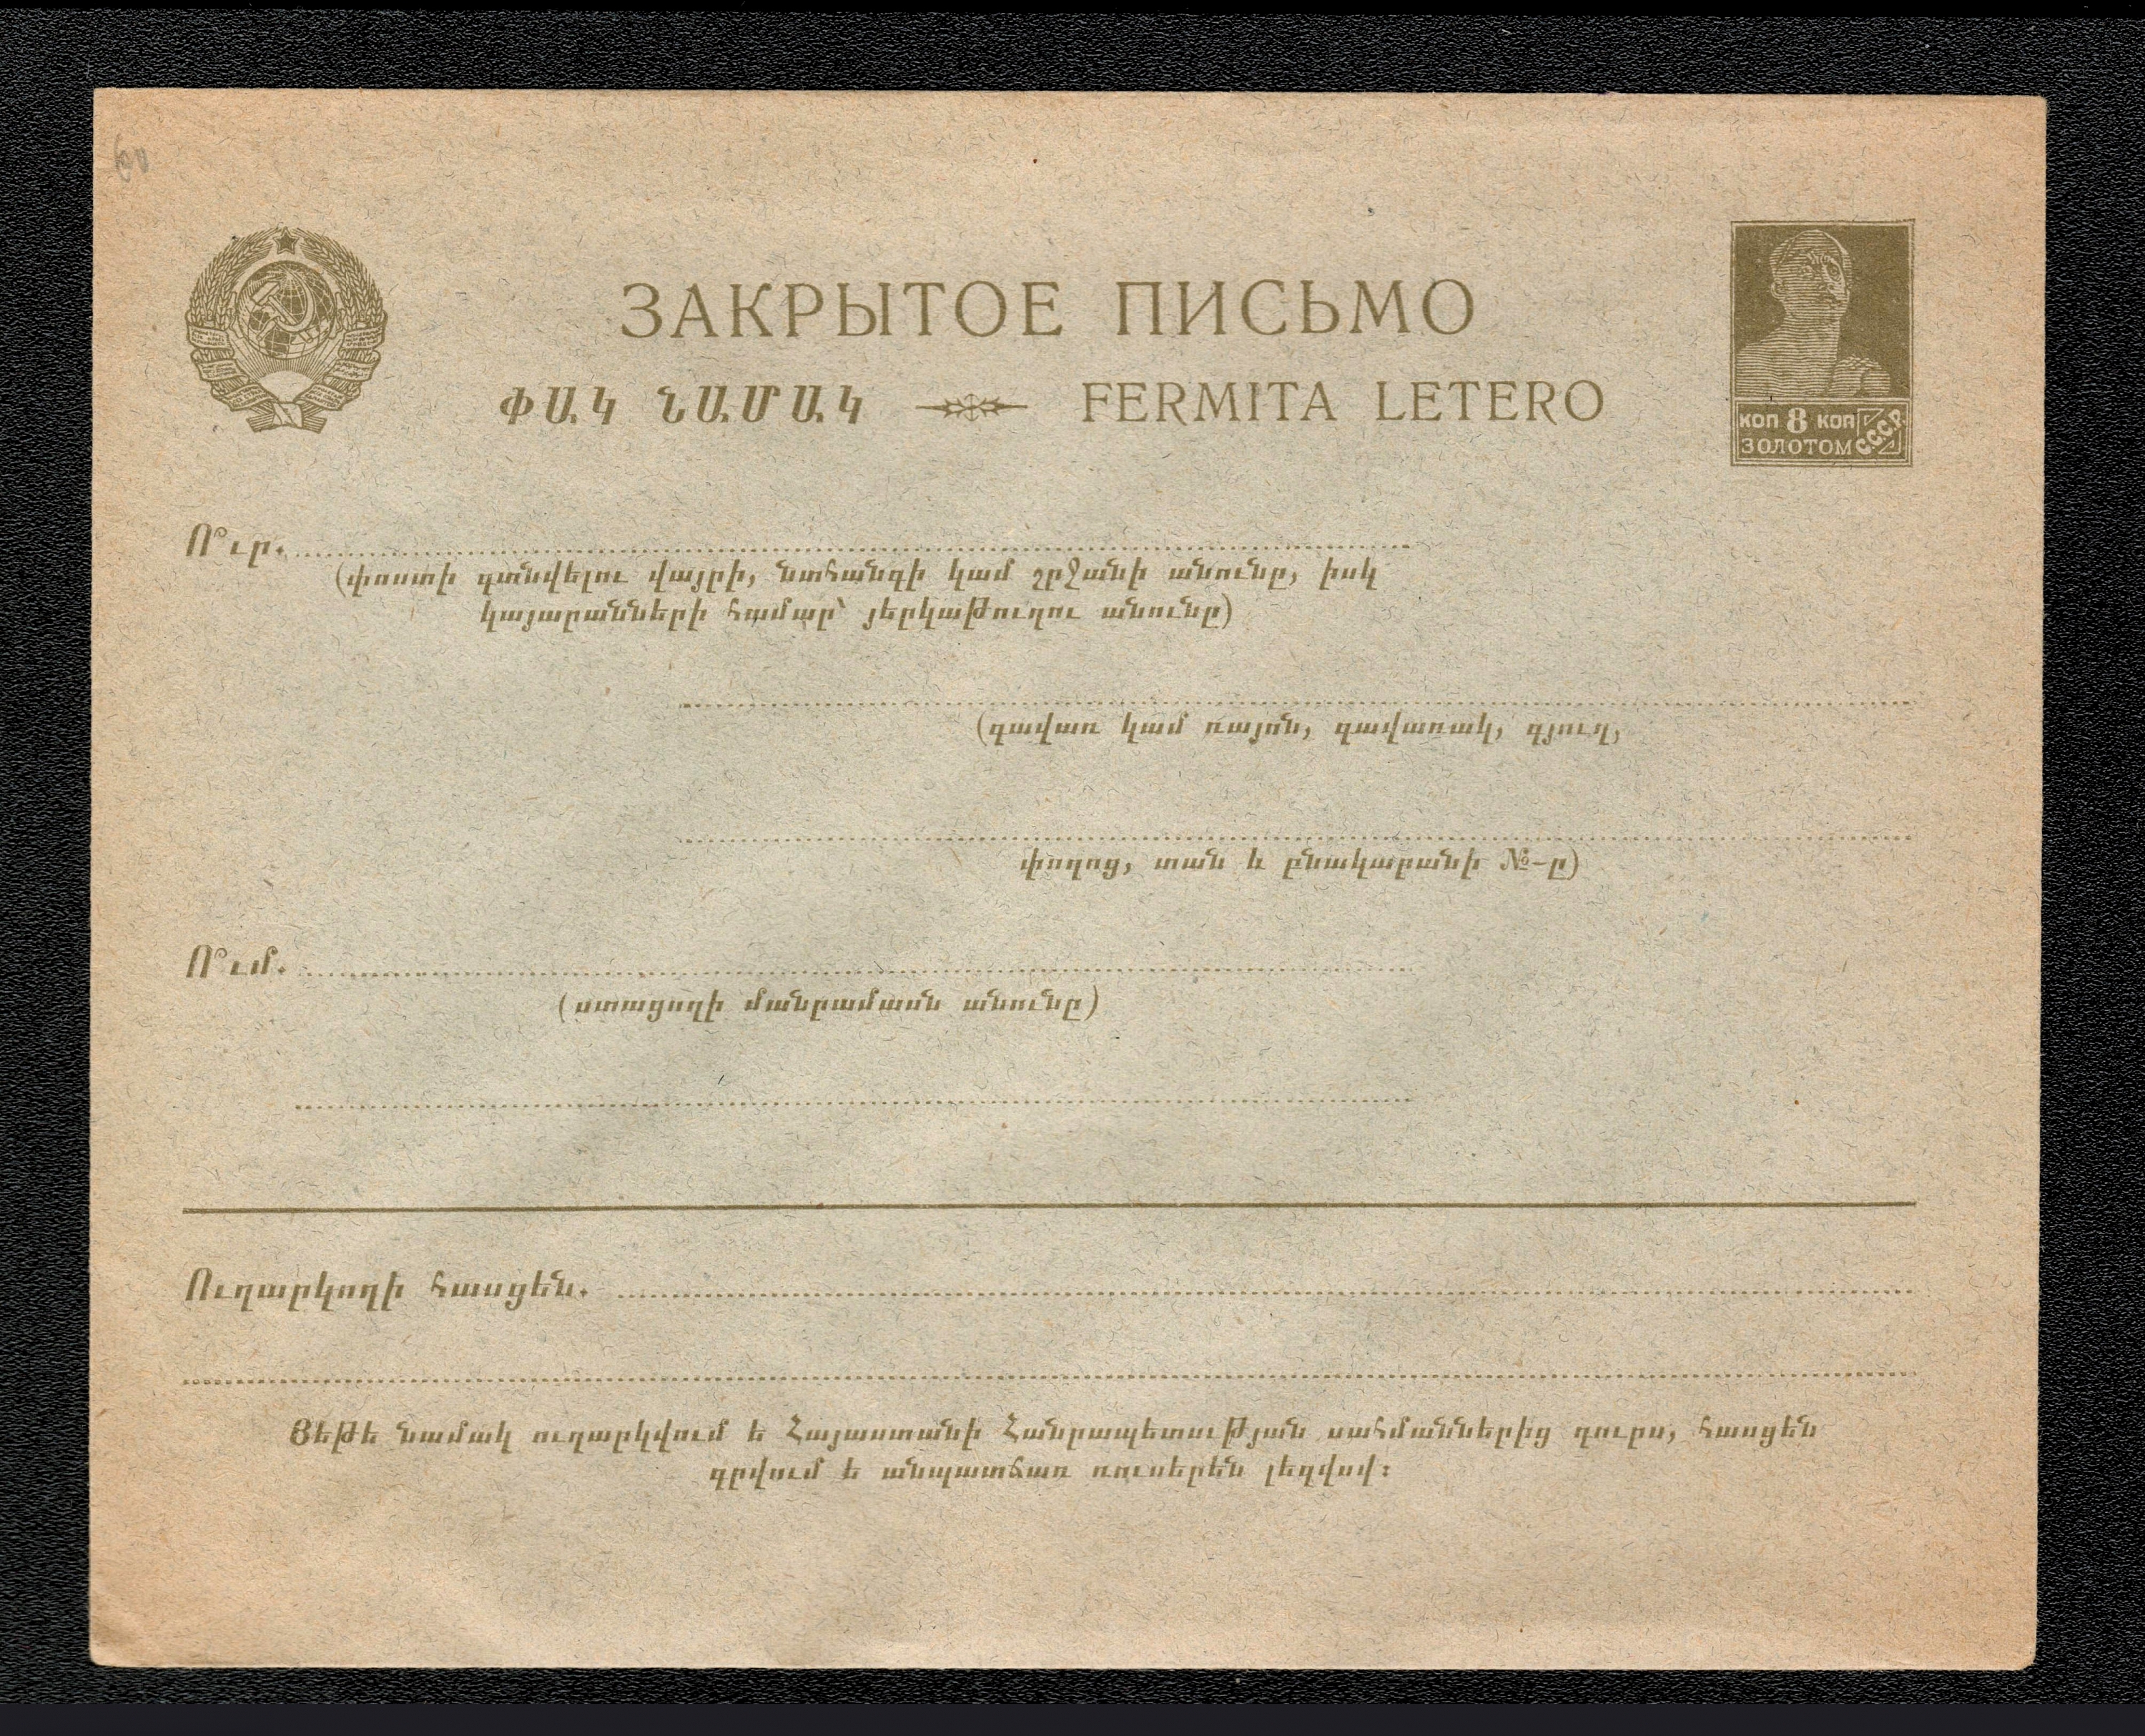 ЗАКРЫТОЕ ПИСЬМО
ՓԱԿ ՆԱՄԱԿ FERMITA LETERO
КОП 8 КОП
ЗОЛОТОМ С.С.С.Р.
Ո՞ւր.
(փոստի գտնվելու վայրի, նահանգի կամ շրջանի անունը, իսկ
կայարանների համար՝ յերկաթուղու անունը)
(գավառ կամ ռայոն, գավառակ, գյուղ,
փողոց, տան և բնակարանի №-ը)
Ո՞ւմ.
(ստացողի մանրամասն անունը)
Ուղարկողի հասցեն.
Յեթե նամակ ուղարկվում ե Հայաստանի Հանրապետության սահմաններից դուրս, հասցեն
գրվում ե անպատճառ ռուսերեն լեզվով։